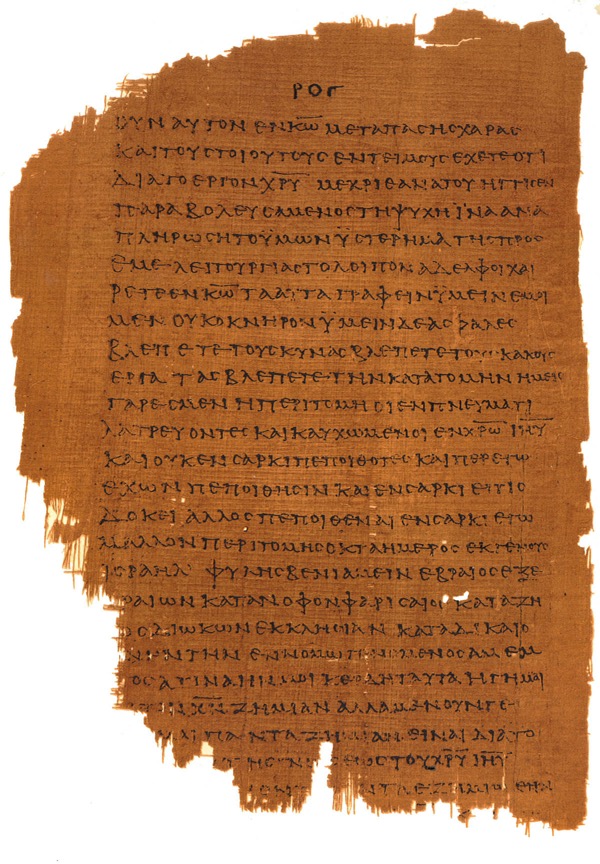 ΡΟΓ
ΟΥΝ ΑΥΤΟΝ ΕΝ Κ̅Ω̅ ΜΕΤΑ ΠΑϹΗϹ ΧΑΡΑϹ
ΚΑΙ ΤΟΥϹ ΤΟΙΟΥΤΟΥϹ ΕΝΤΕΙΜΟΥϹ ΕΧΕΤΕ ΟΤΙ
ΔΙΑ ΤΟ ΕΡΓΟΝ Χ̅Ρ̅Υ̅ ΜΕΧΡΙ ΘΑΝΑΤΟΥ ΗΓΓΙϹΕΝ
ΠΑΡΑΒΟΛΕΥϹΑΜΕΝΟϹ ΤΗ ΨΥΧΗ ΪΝΑ ΑΝΑ
ΠΛΗΡΩϹΗ ΤΟ ΫΜΩΝ ΫϹΤΕΡΗΜΑ ΤΗϹ ΠΡΟϹ
ΕΜΕ ΛΕΙΤΟΥΡΓΙΑϹ ΤΟ ΛΟΙΠΟΝ ΑΔΕΛΦΟΙ ΧΑΙ
ΡΕΤΕ ΕΝ Κ̅Ω̅ ΤΑ ΑΥΤΑ ΓΡΑΦΕΙΝ ΫΜΕΙΝ ΕΜΟΙ
ΜΕΝ ΟΥΚ ΟΚΝΗΡΟΝ ΫΜΕΙΝ ΔΕ ΑϹΦΑΛΕϹ
ΒΛΕΠΕΤΕ ΤΟΥϹ ΚΥΝΑϹ ΒΛΕΠΕΤΕ ΤΟΥϹ ΚΑΚΟΥϹ
ΕΡΓΑΤΑϹ ΒΛΕΠΕΤΕ ΤΗΝ ΚΑΤΑΤΟΜΗΝ ΗΜΕΙϹ
ΓΑΡ ΕϹΜΕΝ Η ΠΕΡΙΤΟΜΗ ΟΙ ΕΝ ΠΝΕΥΜΑΤΙ
ΛΑΤΡΕΥΟΝΤΕϹ ΚΑΙ ΚΑΥΧΩΜΕΝΟΙ ΕΝ Χ̅Ρ̅Ω̅ Ι̅Η̅Υ̅
ΚΑΙ ΟΥΚ ΕΝ ϹΑΡΚΙ ΠΕΠΟΙΘΟΤΕϹ ΚΑΙΠΕΡ ΕΓΩ
ΕΧΩΝ ΠΕΠΟΙΘΗϹΙΝ ΚΑΙ ΕΝ ϹΑΡΚΙ ΕΙ ΤΙϹ
ΔΟΚΕΙ ΑΛΛΟϹ ΠΕΠΟΙΘΕΝΑΙ ΕΝ ϹΑΡΚΙ ΕΓΩ
ΜΑΛΛΟΝ ΠΕΡΙΤΟΜΗϹ ΟΚΤΑΗΜΕΡΟϹ ΕΚ ΓΕΝΟΥϹ
ΙϹΡΑΗΛ ΦΥΛΗϹ ΒΕΝΙΑΜΕΙΝ ΕΒΡΑΙΟϹ ΕΞ ΕΒ
ΡΑΙΩΝ ΚΑΤΑ ΝΟΜΟΝ ΦΑΡΙϹΑΙΟϹ ΚΑΤΑ ΖΗ
ΟϹ ΔΙΩΚΩΝ ΕΚΚΛΗϹΙΑΝ ΚΑΤΑ ΔΙΚΑΙΟ
ΥΝΗΝ ΤΗΝ ΕΝ ΝΟΜΩ ΓΕΝΟΜΕΝΟϹ ΑΜΕΜ
ΟϹ ΑΤΙΝΑ ΗΝ ΜΟΙ ΚΕΡΔΗ ΤΑΥΤΑ ΗΓΗΜΑΙ
ΤΟΝ Χ̅Ρ̅Ν̅ ΖΗΜΙΑΝ ΑΛΛΑ ΜΕΝΟΥΝΓΕ
ΜΑΙ ΠΑΝΤΑ ΖΗΜΙΑΝ ΕΙΝΑΙ ΔΙΑ ΤΟ
ΤΗϹ ΓΝΩϹΕΩϹ ΤΟΥ Χ̅Ρ̅Υ̅ Ι̅Η̅Υ̅
ΝΤΑ ΕΖΗΜΙΩΘΗΝ